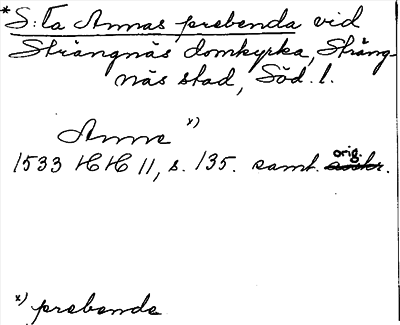 * S:ta Annas prebenda vid
Strängnäs domkyrka, Sträng-
näs stad, Söd. l.
Anne x)
1533 HH 11, s. 135. samt. orig.
x) prebende